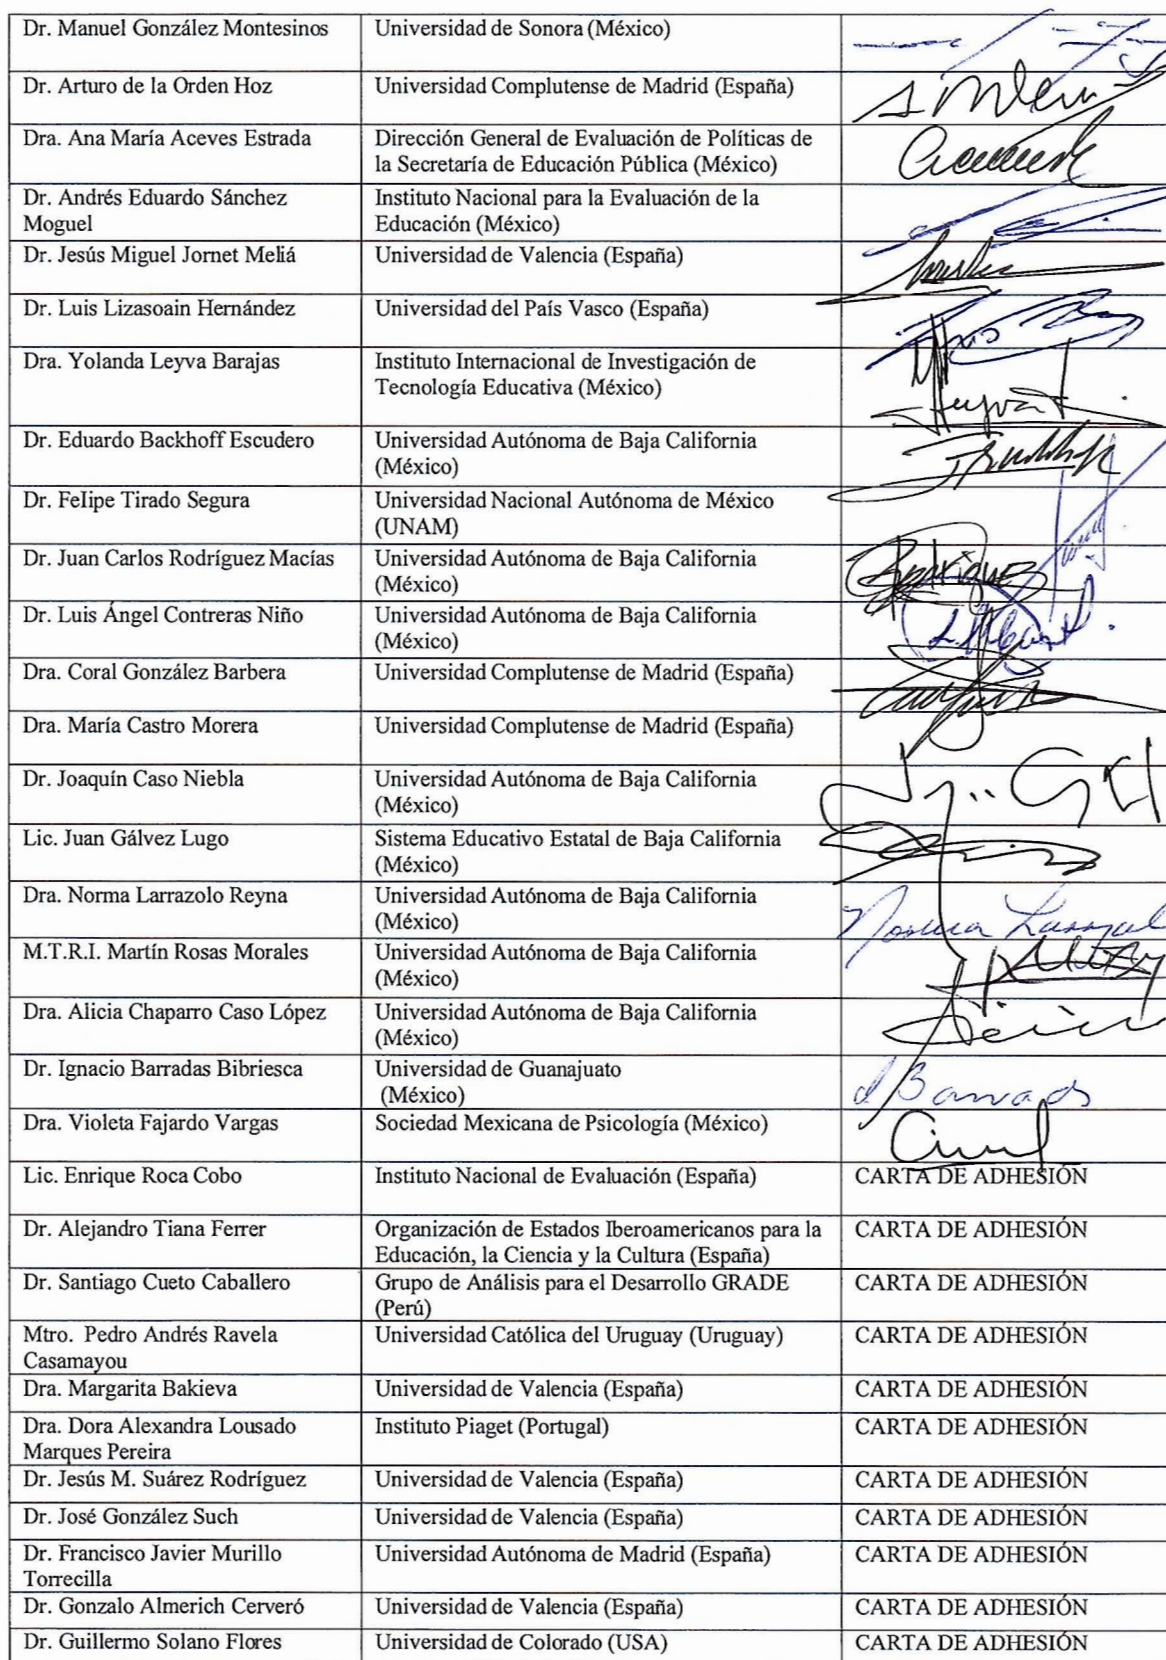 Dr. Manuel González Montesinos Universidad de Sonora (México)
Dr. Arturo de la Orden Hoz Universidad Complutense de Madrid (España)
Dra. Ana María Aceves Estrada Dirección General de Evaluación de Políticas de
la Secretaría de Educación Pública (México)
Dr. Andrés Eduardo Sánchez Instituto Nacional para la Evaluación de la
Moguel Educación (México)
Dr. Jesús Miguel Jornet Meliá Universidad de Valencia (España)
Dr. Luis Lizasoain Hernández Universidad del País Vasco (España)
Dra. Yolanda Leyva Barajas Instituto Internacional de Investigación de
Tecnología Educativa (México)
Dr. Eduardo Backhoff Escudero Universidad Autónoma de Baja California
(México)
Dr. Felipe Tirado Segura Universidad Nacional Autónoma de México
(UNAM)
Dr. Juan Carlos Rodríguez Macías Universidad Autónoma de Baja California
(México)
Dr. Luis Ángel Contreras Niño Universidad Autónoma de Baja California
(México)
Dra. Coral González Barbera Universidad Complutense de Madrid (España)
Dra. María Castro Morera Universidad Complutense de Madrid (España)
Dr. Joaquín Caso Niebla Universidad Autónoma de Baja California
(México)
Lic. Juan Gálvez Lugo Sistema Educativo Estatal de Baja California
(México)
Dra. Norma Larrazolo Reyna Universidad Autónoma de Baja California
(México)
M.T.R.I. Martín Rosas Morales Universidad Autónoma de Baja California
(México)
Dra. Alicia Chaparro Caso López Universidad Autónoma de Baja California
(México)
Dr. Ignacio Barradas Bibriesca Universidad de Guanajuato
(México)
Dra. Violeta Fajardo Vargas Sociedad Mexicana de Psicología (México)
Lic. Enrique Roca Cobo Instituto Nacional de Evaluación (España) CARTA DE ADHESIÓN
Dr. Alejandro Tiana Ferrer Organización de Estados Iberoamericanos para la CARTA DE ADHESIÓN
Educación, la Ciencia y la Cultura (España)
Dr. Santiago Cueto Caballero Grupo de Análisis para el Desarrollo GRADE CARTA DE ADHESIÓN
(Perú)
Mtro. Pedro Andrés Ravela Universidad Católica del Uruguay (Uruguay) CARTA DE ADHESIÓN
Casamayou
Dra. Margarita Bakieva Universidad de Valencia (España) CARTA DE ADHESIÓN
Dra. Dora Alexandra Lousado Instituto Piaget (Portugal) CARTA DE ADHESIÓN
Marques Pereira
Dr. Jesús M. Suárez Rodríguez Universidad de Valencia (España) CARTA DE ADHESIÓN
Dr. José González Such Universidad de Valencia (España) CARTA DE ADHESIÓN
Dr. Francisco Javier Murillo Universidad Autónoma de Madrid (España) CARTA DE ADHESIÓN
Torrecilla
Dr. Gonzalo Almerich Cerveró Universidad de Valencia (España) CARTA DE ADHESIÓN
Dr. Guillermo Solano Flores Universidad de Colorado (USA) CARTA DE ADHESIÓN